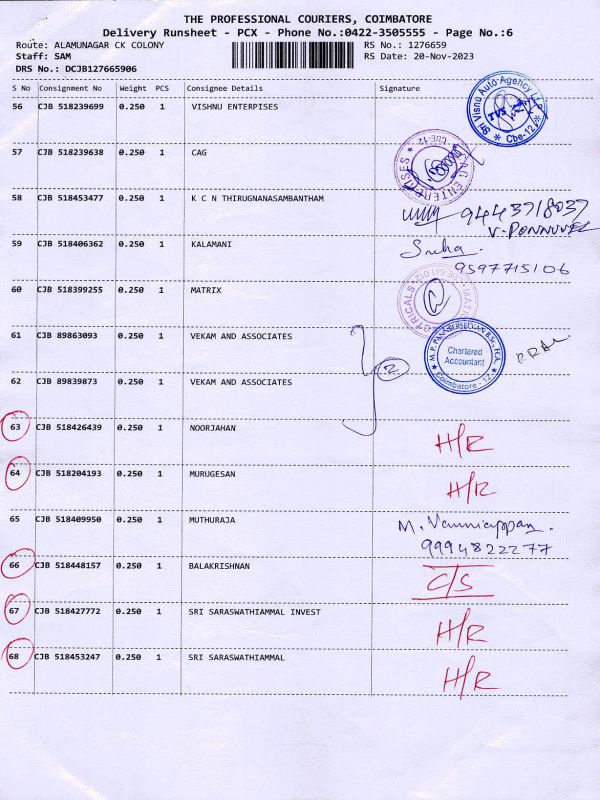 THE PROFESSIONAL COURIERS, COIMBATORE
Delivery Runsheet - PCX - Phone No.:0422-3505555 - Page No.:6
Route: ALAMUNAGAR CK COLONY RS No.: 1276659
Staff: SAM RS Date: 20-Nov-2023
DRS No.: DCJB127665906
S No Consignment No Weight PCS Consignee Details Signature
56 CJB 518239699 0.250 1 VISHNU ENTERPISES
Sri Visnu Auto Agency LLP
★ Cbe-12 ★
57 CJB 518239638 0.250 1 CAG
CAG ENTERPRISES
58 CJB 518453477 0.250 1 K C N THIRUGNANASAMBANTHAM 9443718037
V. PONNUVEL
59 CJB 518406362 0.250 1 KALAMANI
9597715106
60 CJB 518399255 0.250 1 MATRIX
61 CJB 89863093 0.250 1 VEKAM AND ASSOCIATES
2
Chartered
Accountant
Coimbatore - 12
62 CJB 89839873 0.250 1 VEKAM AND ASSOCIATES
63 CJB 518426439 0.250 1 NOORJAHAN H/R
64 CJB 518204193 0.250 1 MURUGESAN H/R
65 CJB 518409950 0.250 1 MUTHURAJA M. Vanniappan.
9994822277
66 CJB 518448157 0.250 1 BALAKRISHNAN C/S
67 CJB 518427772 0.250 1 SRI SARASWATHIAMMAL INVEST H/R
68 CJB 518453247 0.250 1 SRI SARASWATHIAMMAL H/R